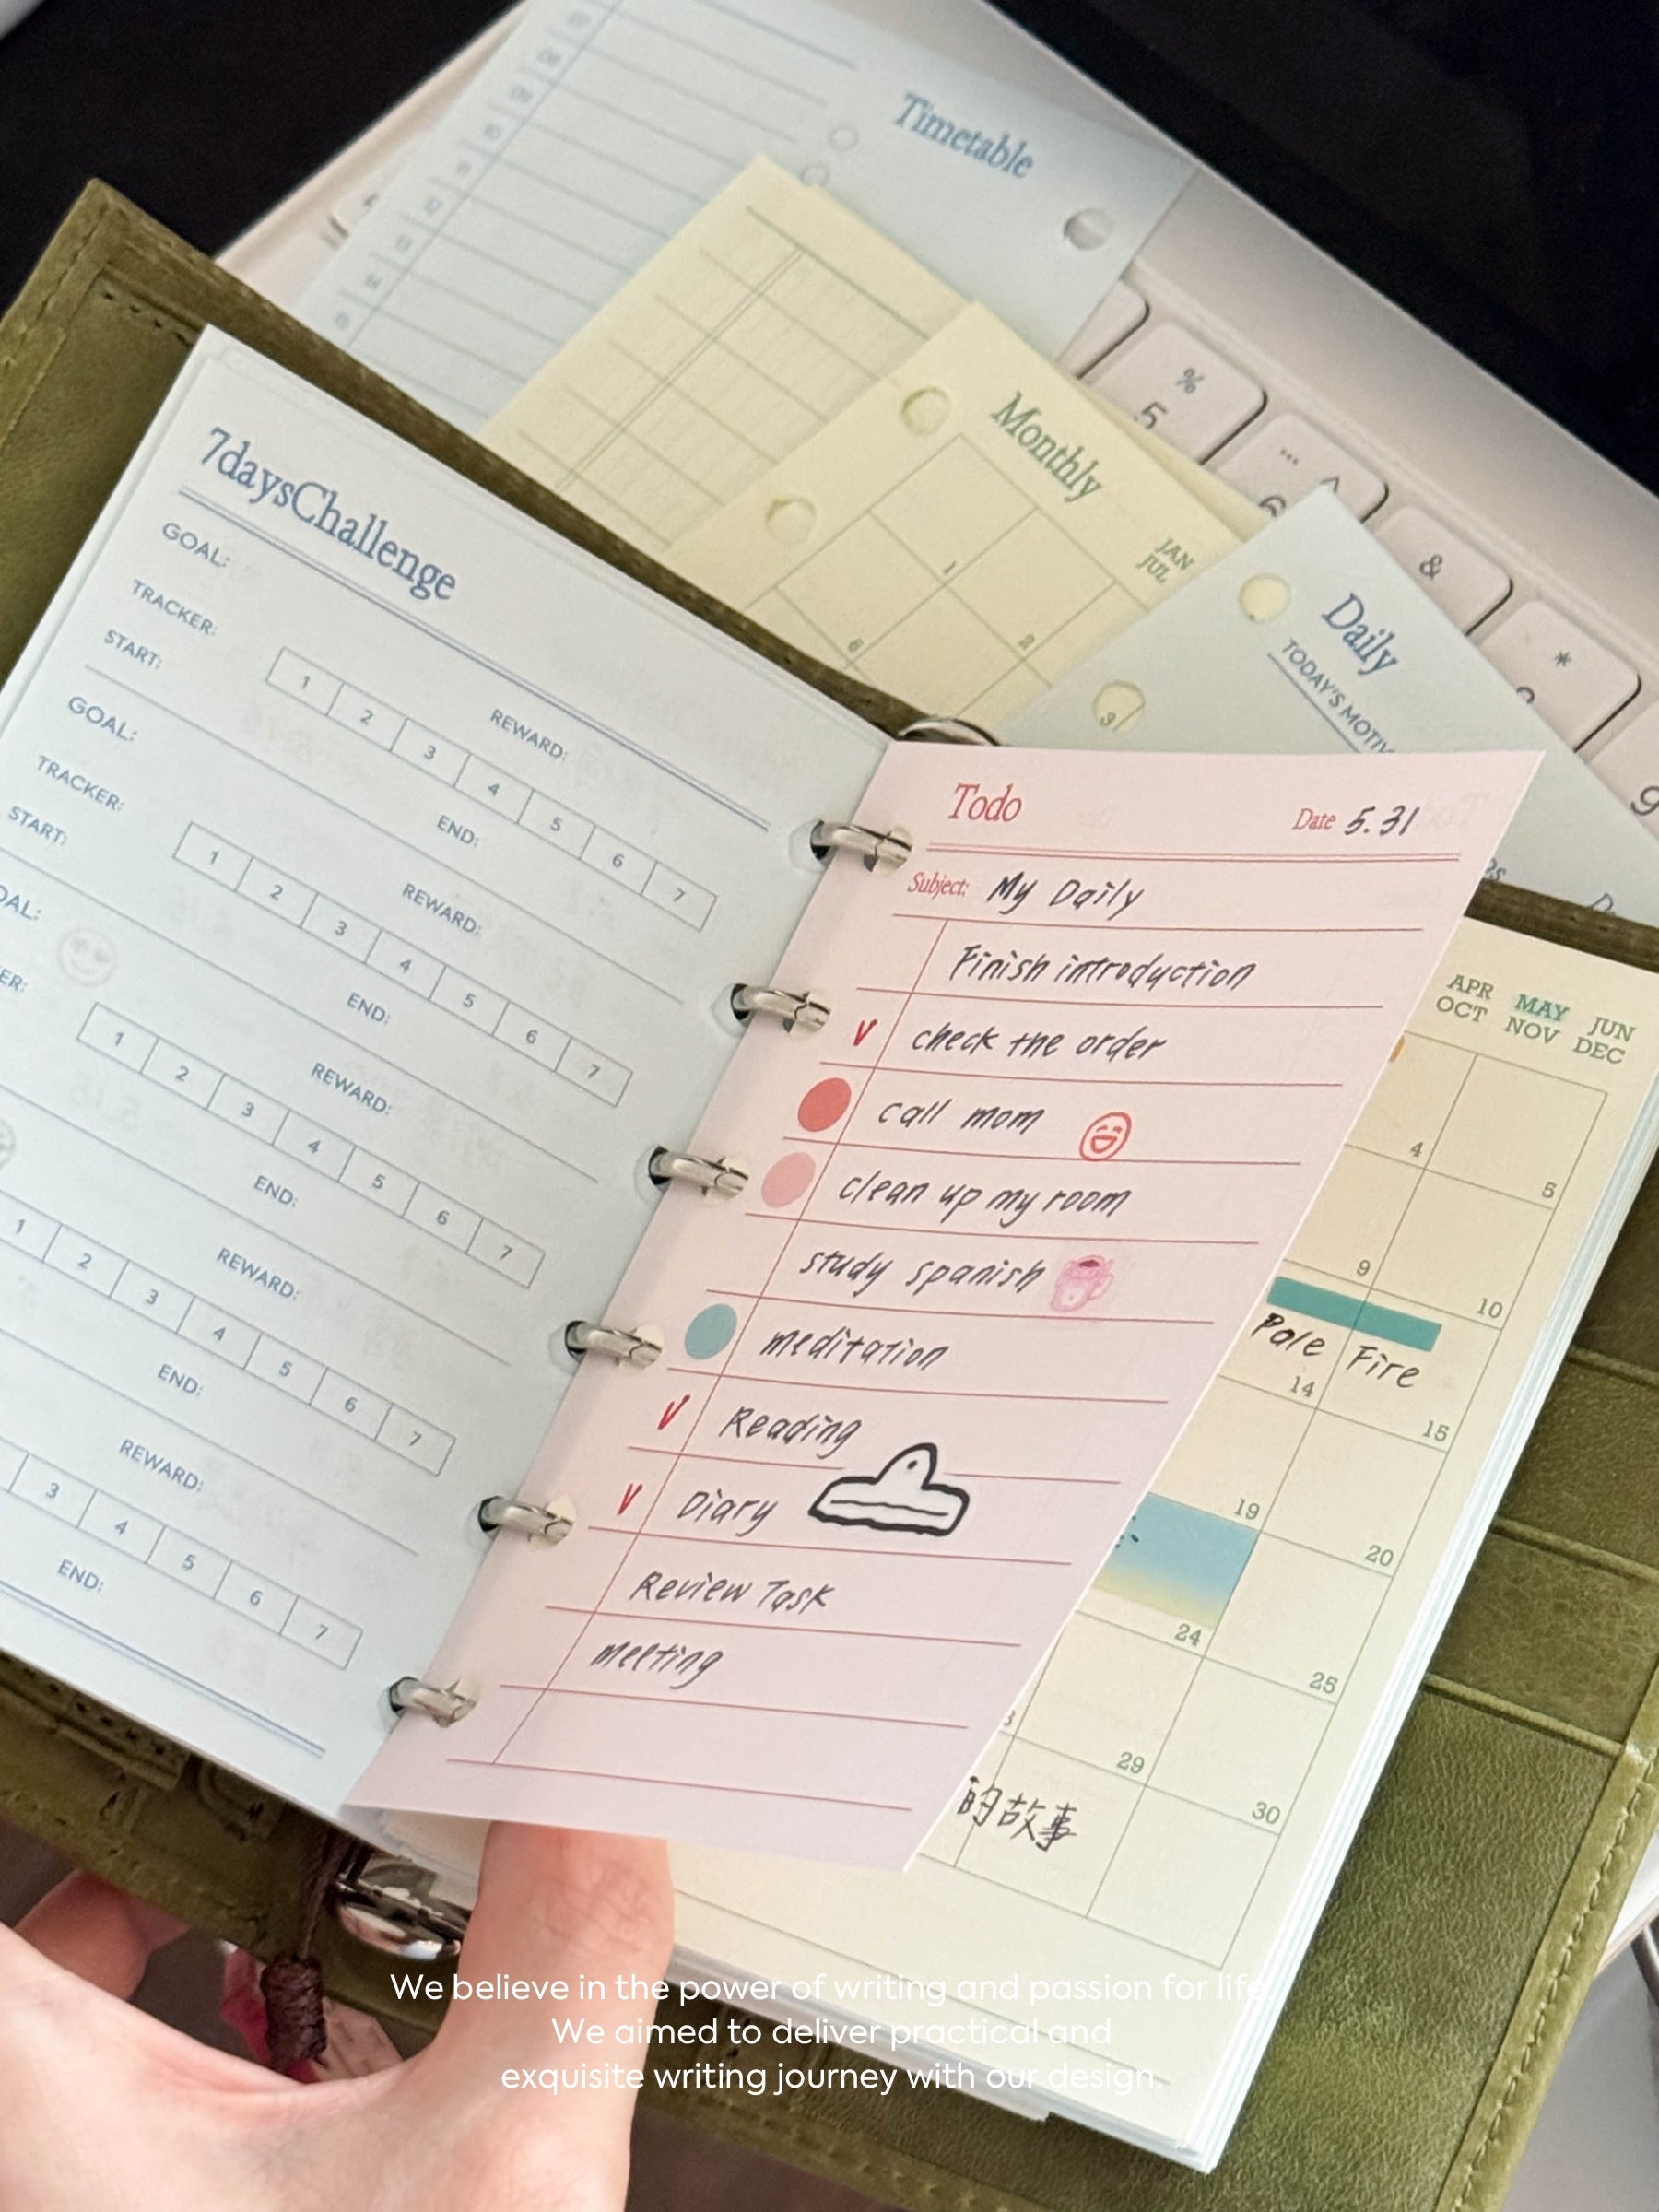 Timetable
Monthly
JAN
JUL
1
2
6
3
Daily
TODAY'S
%
5
^
6
&
*
9
7daysChallenge
GOAL:
TRACKER:
1 2 3 4 5 6 7
START:
REWARD:
END:
GOAL:
TRACKER:
1 2 3 4 5 6 7
START:
REWARD:
END:
1 2 3 4 5 6 7
REWARD:
END:
1 2 3 4 5 6 7
REWARD:
END:
3 4 5 6 7
REWARD:
END:
Todo
Date 5.31
Subject: My Daily
Finish introduction
V check the order
call mom
clean up my room
study spanish
meditation
V Reading
V Diary
Review Task
Meeting
APR MAY JUN
OCT NOV DEC
4 5
9 10
Pale Fire
14 15
19 20
24 25
29 30
的故事
We believe in the power of writing and passion for life.
We aimed to deliver practical and
exquisite writing journey with our design.